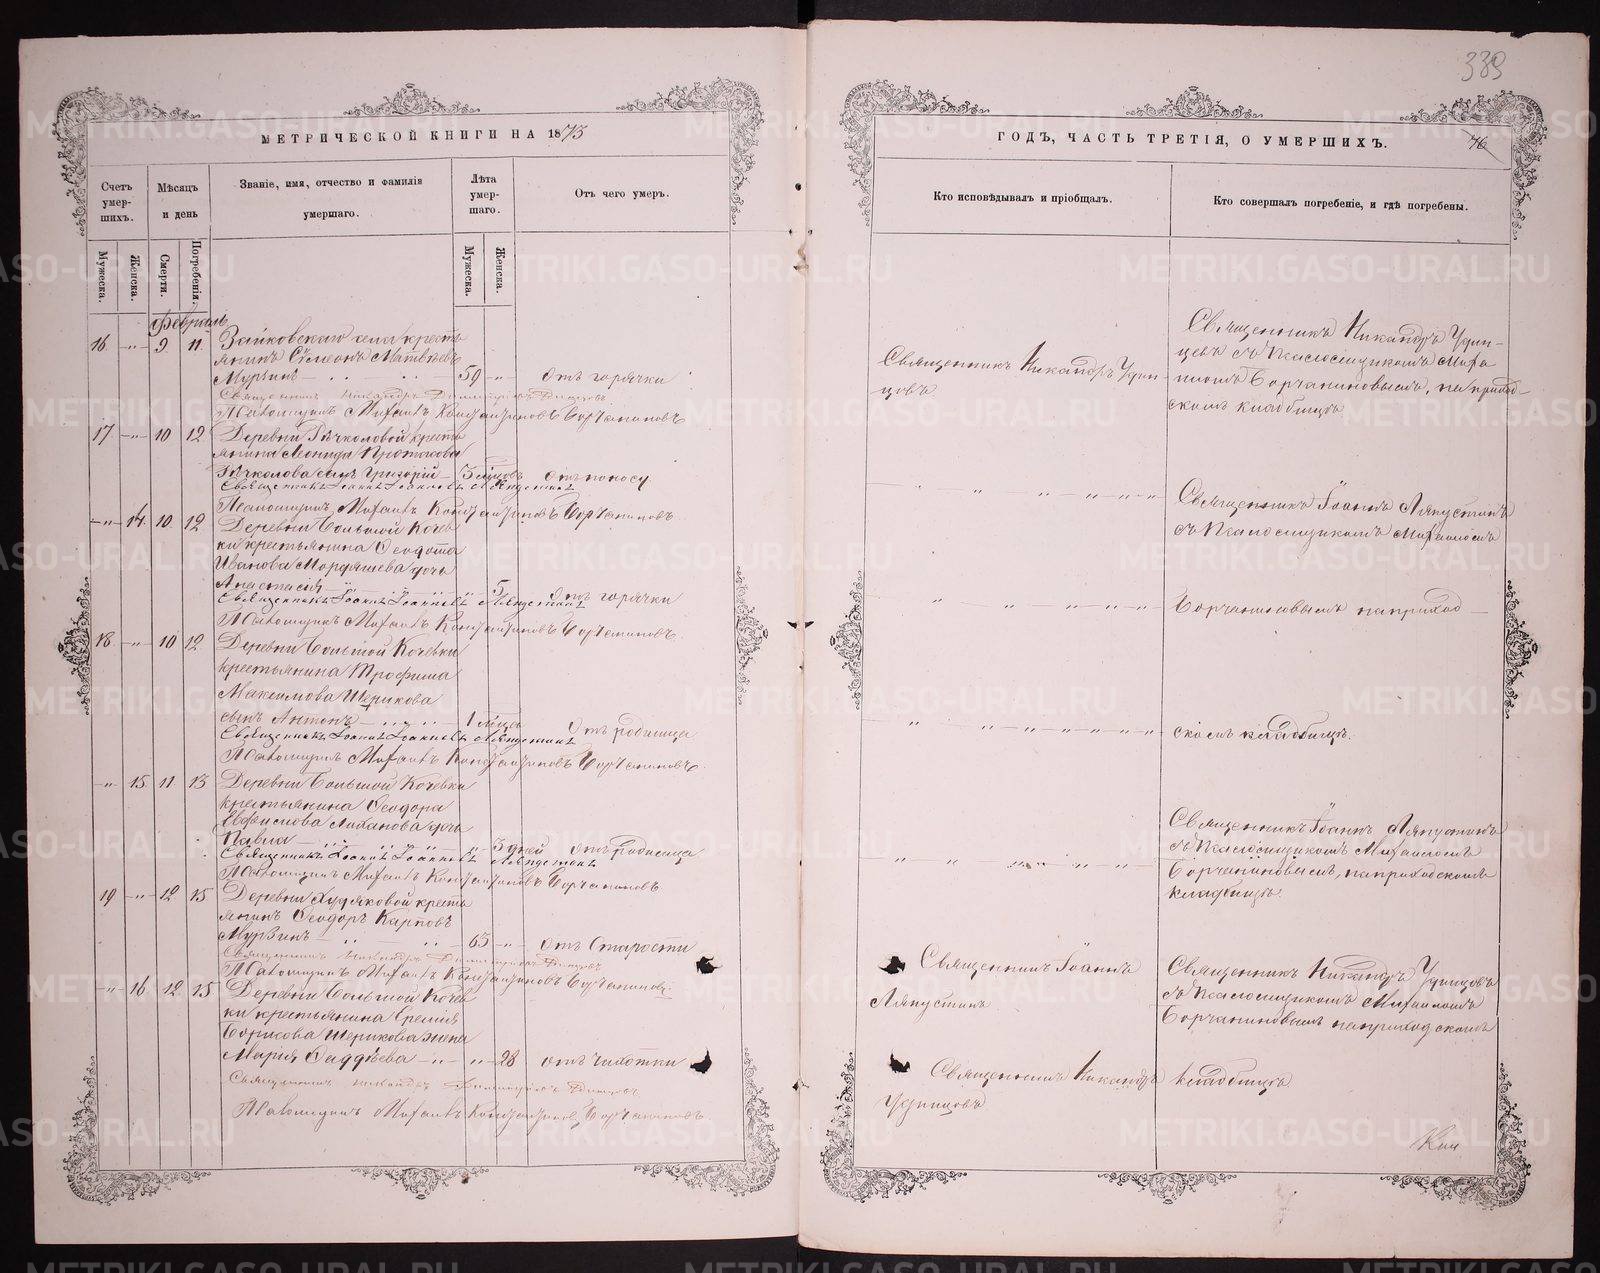 339
МЕТРИЧЕСКОЙ КНИГИ НА 1873
ГОДЪ, ЧАСТЬ ТРЕТІЯ, О УМЕРШИХЪ.
76
Счетъ умер-шихъ.
Мѣсяцъ и день
Званіе, имя, отчество и фамилія умершаго.
Лѣта умер-шаго.
Отъ чего умеръ.
Кто исповѣдывалъ и пріобщалъ.
Кто совершалъ погребеніе, и гдѣ погребены.
Мужеска.
Женска.
Смерти.
Погребенія.
Мужеска.
Женска.
Февраль
16 „ 9 11 Зайковскаго села кресть
янинъ Сѵмеонъ Матвѣевъ
Мурзинъ 59 „ Отъ горячки
Священникъ Никандръ Удин-
цовъ
Священникъ Никандръ Удин-
цевъ съ Псаломщикомъ Миха
иломъ Борчаниновымъ, на приход-
скомъ кладбищѣ
Псаломщикъ Михаилъ Константиновъ Борчаниновъ
17 „ 10 12 Деревни Гѣчколовой кресть
янина Леонида Протасова
сынъ Григорій 3 мѣсяцовъ Отъ поносу
Священникъ Іоаннъ Іоанновъ Ляпустинъ
Псаломщикъ Михаилъ Константиновъ Борчаниновъ
Священникъ Іоаннъ Ляпустинъ
съ Псаломщикомъ Михаиломъ
„ 14 10 12 Деревни Большой Кочев
ки крестьянина Ѳеодота
Иванова Мордяшева дочь
Анастасія 5 Отъ горячки
Священникъ Іоаннъ Іоанновъ Ляпустинъ
Псаломщикъ Михаилъ Константиновъ Борчаниновъ.
Борчаниновымъ на приход
18 „ 10 12 Деревни Большой Кочевки
крестьянина Трофима
Максимова Шерикова
сынъ Антонъ 1 мѣсяца Отъ родимца
Священникъ Іоаннъ Іоанновъ Ляпустинъ
Псаломщикъ Михаилъ Константиновъ Борчаниновъ.
скомъ кладбищѣ.
„ 15 11 13 Деревни Большой Кочевки
крестьянина Ѳеодора
Евфимова Лиханова дочь
Павла 3 дней Отъ родимца
Священникъ Іоаннъ Іоанновъ Ляпустинъ
Псаломщикъ Михаилъ Константиновъ Борчаниновъ
Священникъ Іоаннъ Ляпустинъ
съ Псаломщикомъ Михаиломъ
Борчаниновымъ, на приходскомъ
кладбищѣ.
19 „ 12 15 Деревни Худяковой кресть
янинъ Ѳеодоръ Карповъ
Мурзинъ 65 „ Отъ Старости
Псаломщикъ Михаилъ Константиновъ Борчаниновъ
Священникъ Іоаннъ
Ляпустинъ
Священникъ Никандръ Удинцовъ
съ Псаломщикомъ Михаиломъ
Борчаниновымъ на приходскомъ
„ 16 12 15 Деревни Большой Кочев
ки крестьянина Еремія
Борисова Шерикова жена
Марія Ѳаддѣева „ 28 отъ чахотки
Псаломщикъ Михаилъ Константиновъ Борчаниновъ.
Священникъ Никандръ
Удинцовъ
кладбищѣ
METRIKI.GASO-URAL.RU